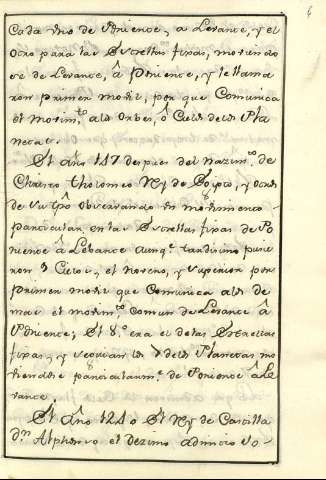 6
Cada uno de Poniente, a Levante, y el
Otro para las Estrellas fixas, moviendo
se de Levante, â Poniente, y le llama
ron primer movil, por que Comunica
el movim.to a los Orbes, ô Cielos de los Pla
netas.
El año 147 despues del Nazim.to de
Christo Tholomeo Rey de Egipto, y
de observando un movimiento
particular en las Estrellas fixas de Po
niente â Lebante aunq.e tardisimo pusie
ron 9 Cielos, el Noveno, y superior por
primer movil que Comunica a los de
mas el movim.to comun de Levante â
Poniente; El 8.o era el de las Estrellas
fixas, y seguian los 7 de los Planetas mo
viendose particularm.te de Poniente â Le
vante.
El año 1240 el Rey de Castilla
d.n Alphonso el dezimo